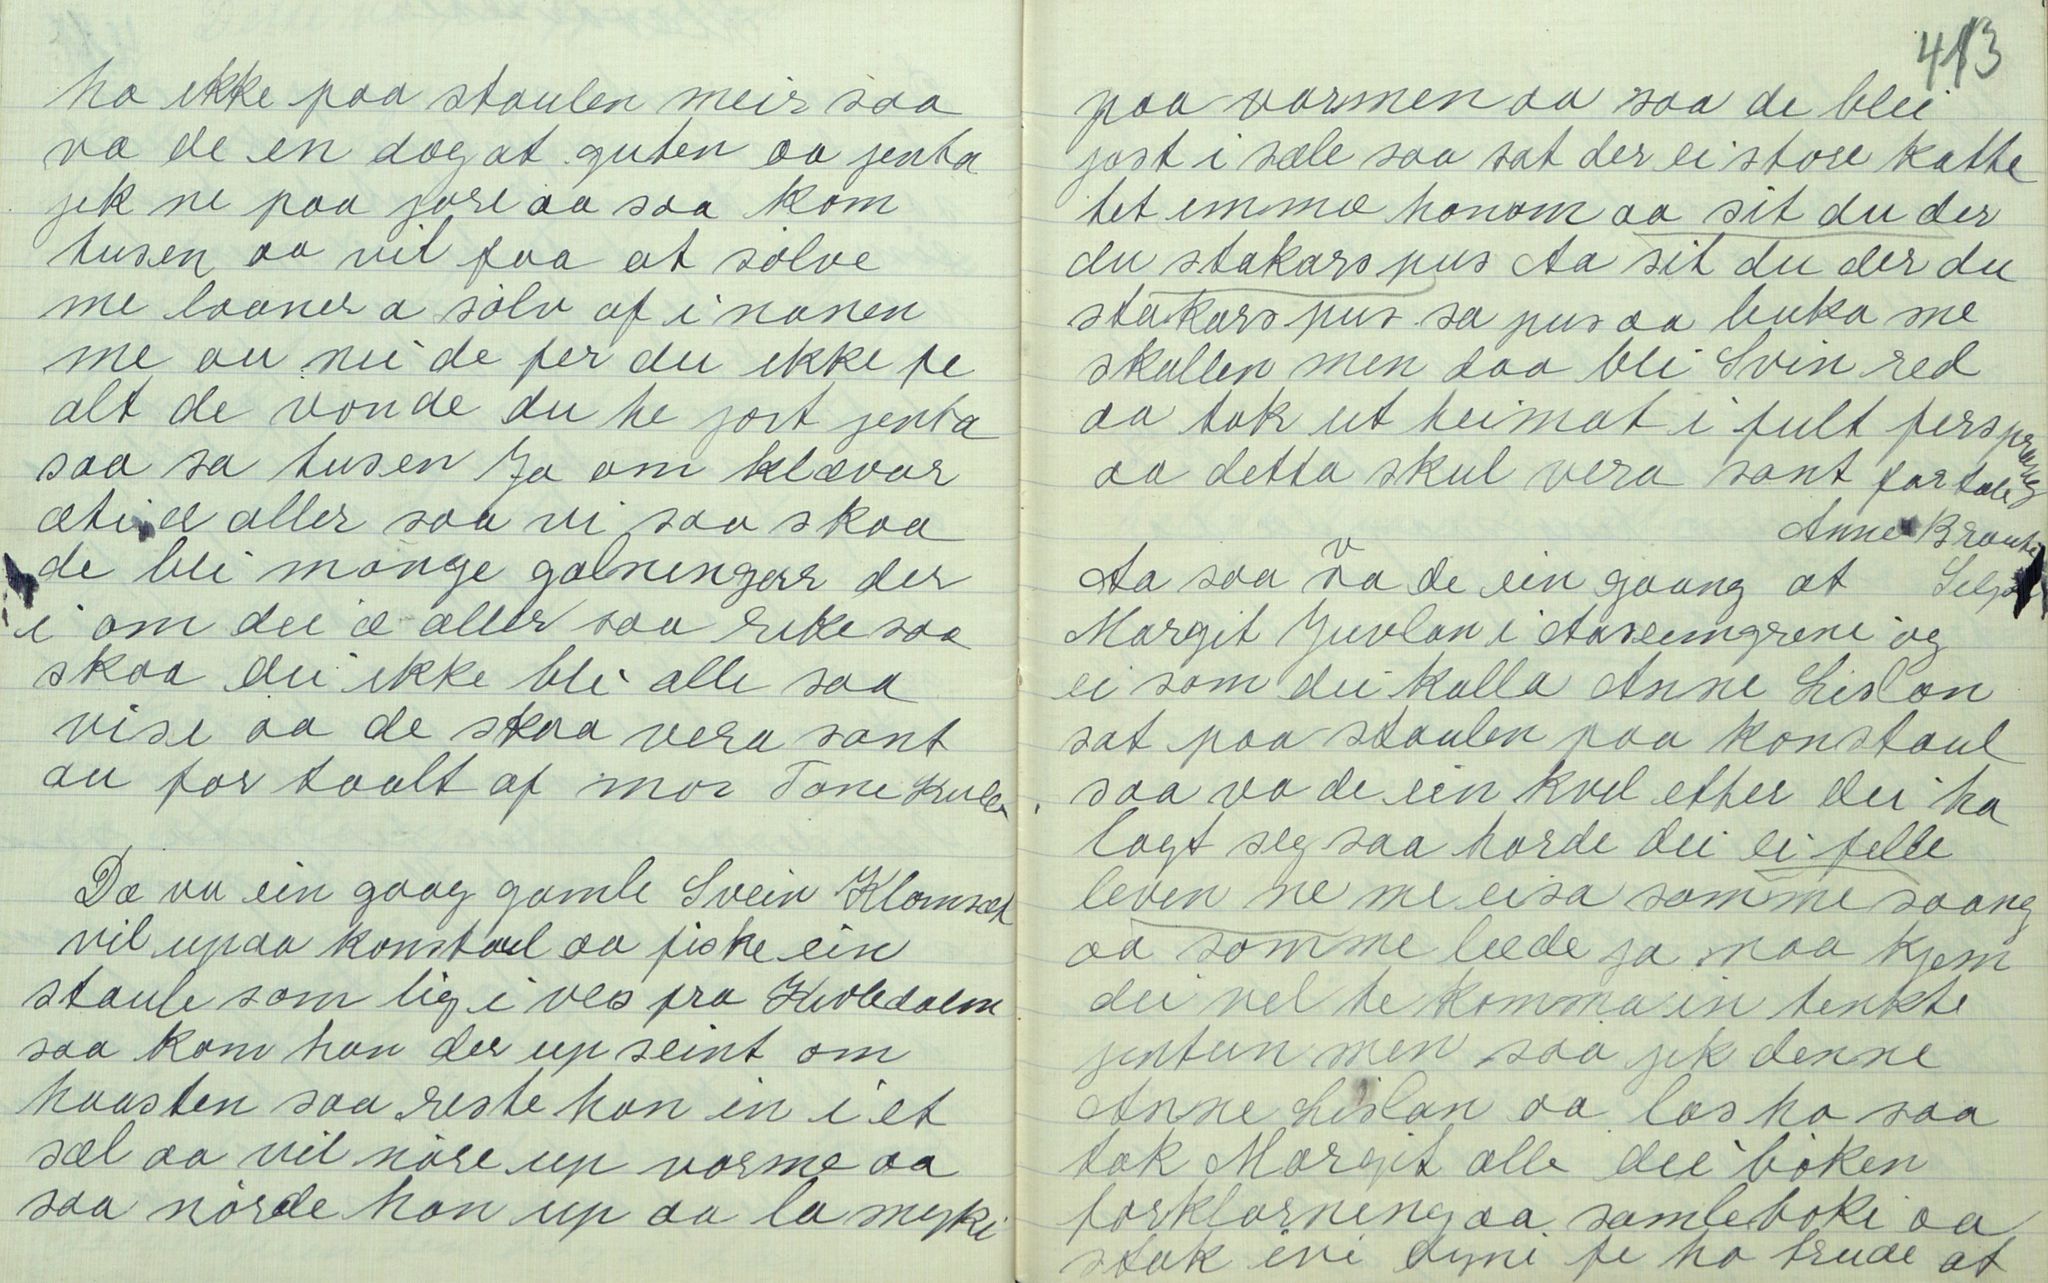 ho ikke paa staulen meir saa
va de en dag at guten aa jenta
jek ne paa jore aa saa kom
tusen aa vil faa at sölve
me laaner a sölv af i nanen
me au nei de fer du ikke fe
alt de vonde du he jort jenta
saa sa tusen Ja om klævar
æti er aller saa vi saa skaa
de bli mange galningarr der
i om dei æ aller saa rike saa
skaa dei ikke bli alle saa
vise aa de skaa vera sant
au for taalt af mor Tone
Dæ va ein gaag gamle Svein
vil upaa konstaul aa fiske ein
staule som lig i ves fra
saa kom han der up seint om
haasten saa reste han in i et
sæl aa vil nöre up varme aa
saa nörde han up aa la myki
413
paa varmen aa saa de blei
jost i sæle saa sat der ei store katte
tet immæ honom aa sit du der
du stakars pus Aa sit du der du
stakars pus sa pus aa buka me
skallen men daa bli Svin red
aa tok ut heimat i fult fersprang
aa detta skul vera sant fortæle
Anne Braate
Aa saa va de ein gaang at
Margit Juvlan i Aaseimgrene og
ei som dei kalla Anne Lislan
sat paa staulen paa konstaul
saa va de ein kvel ether dei ha
lagt seg saa horde dei ei felle
leven ne me eisa somme saang
aa somme læde ja naa kjem
dei vel te komma in tenkte
jentun men saa jek denne
Anne Lislan aa las ho saa
tok Margit alle dei böken
forklarning aa samleboki aa
stak ivi dyni fe ho trude at